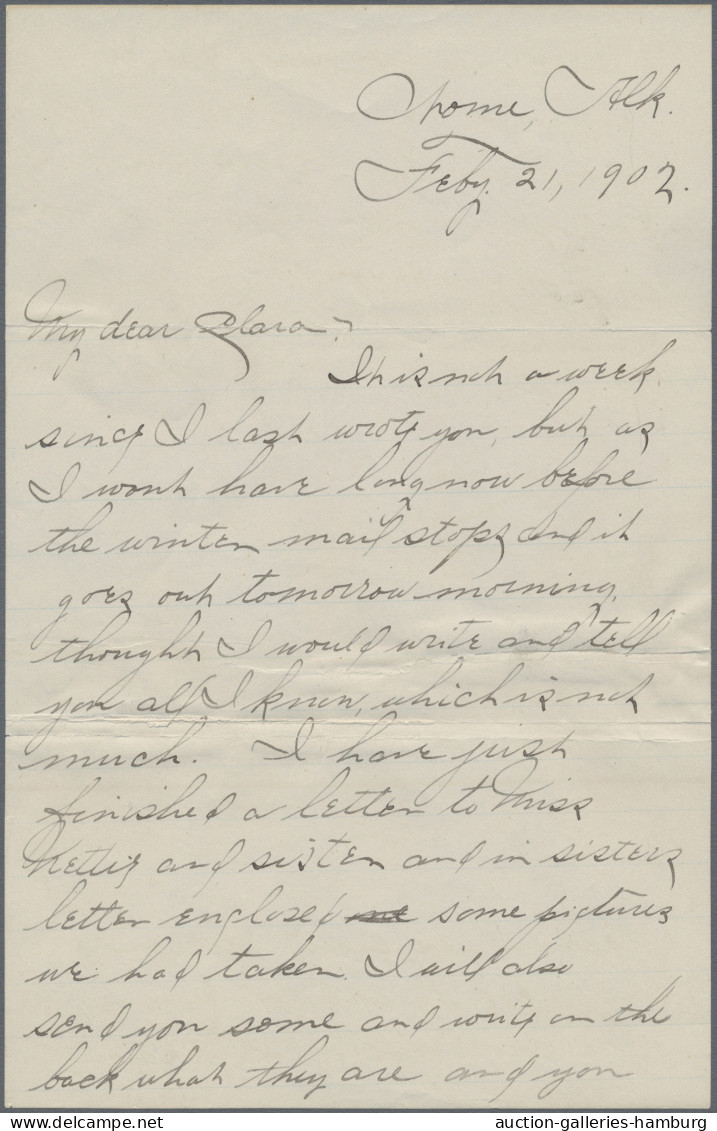 Nome, Alk.
Feby. 21, 1902.
My dear Clara:
It is not a week
since I last wrote you, but as
I wont have long now before
the winter mail stops and it
goes out tomorrow morning,
thought I would write and tell
you all I know, which is not
much. I have just
finished a letter to Miss
Nettie and sister and in sisters
letter enclosed some pictures
we had taken. I will also
send you some and write on the
back what they are and you
auction-galleries-hamburg